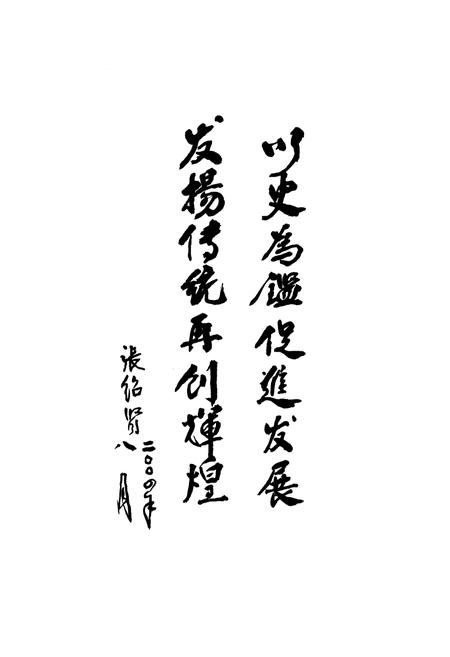 以史為鑑促進发展
发揚传统再创輝煌
張紹贤
二〇〇四年
八月